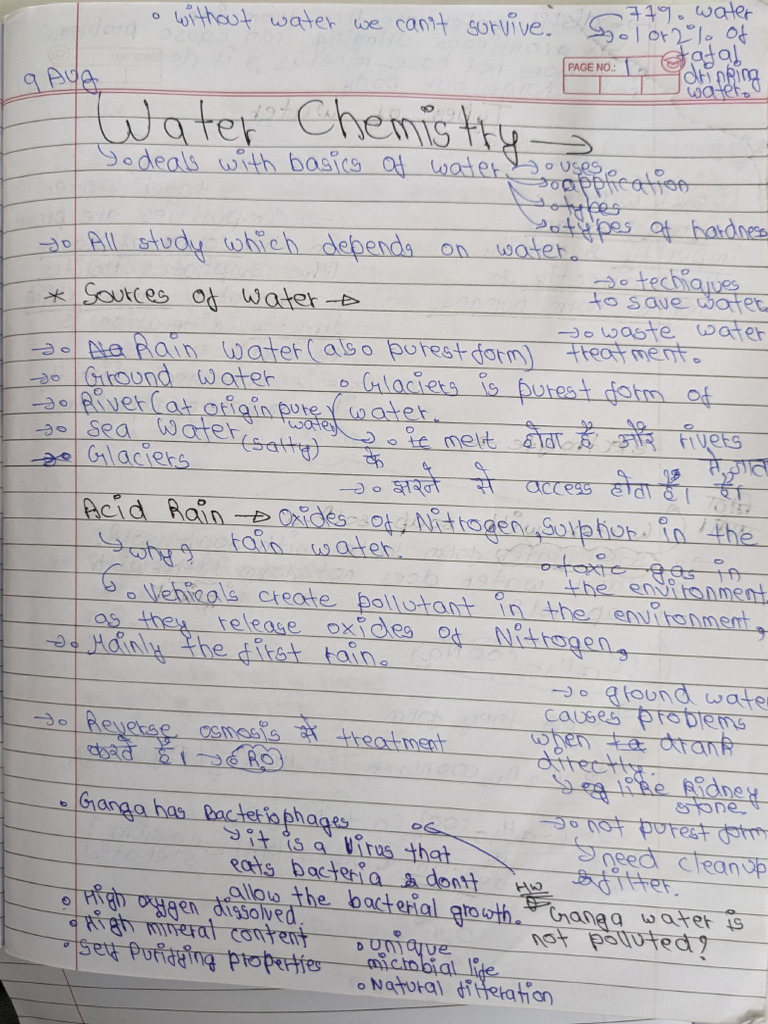 • without water we can't survive.
→ 77% water
→ 1 or 2% of total drinking water.
PAGE NO.: 1
9 Aug
Water Chemistry →
→ deals with basics of water.
→ uses
→ application
→ types
→ types of hardness
→ All study which depends on water.
→ techiques to save water.
* Sources of water →
→ waste water treatment.
→ Rain water (also purest form)
→ Ground water
→ River (at origin pure water)
→ Sea water (salty)
→ Glaciers
• Glaciers is purest form of water.
→ melt होता है और rivers में जाता है।
→ के झरने से access होता है।
Acid Rain → Oxides of Nitrogen, Sulphur. in the rain water.
↳ why?
• toxic gas in the environment
↳ • Vehicals create pollutant in the environment,
as they release oxides of Nitrogen,
→ Mainly the first rain.
→ ground water
causes problems
when drank
directly.
↳ eg like Kidney
stone
→ not purest form
↳ need cleanup
& filter.
→ Reverse osmosis से treatment
करते हैं। → RO
• Ganga has Bacteriophages
→ it is a Virus that
eats bacteria & don't
allow the bacterial growth.
HW
Ganga water is
not polluted?
• High oxygen dissolved.
• High mineral content
• Self Purifying properties
• unique
microbial life
• Natural filteration